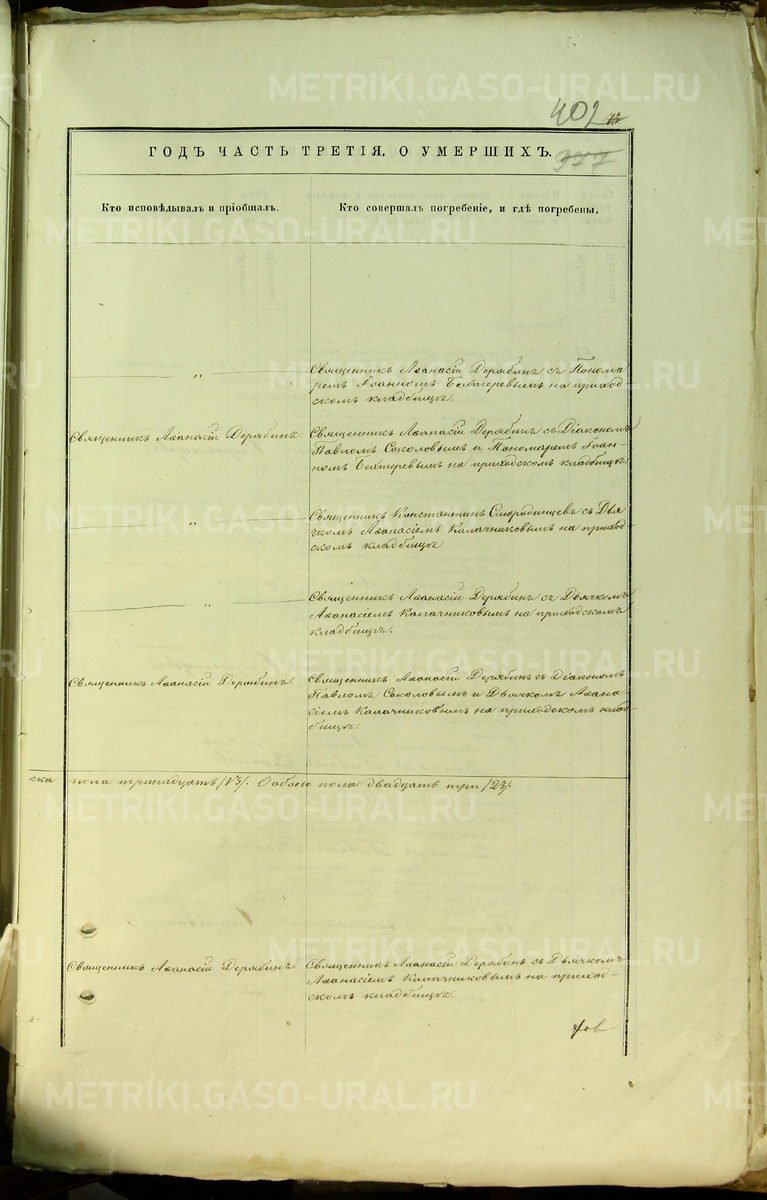 METRIKI.GASO-URAL.RU
402
377
ГОДЪ ЧАСТЬ ТРЕТІЯ, О УМЕРШИХЪ.
Кто исповѣдывалъ и пріобщалъ.
Кто совершалъ погребеніе, и гдѣ погребены.
„
Священникъ Аѳанасій Дерябинъ съ Понома
ремъ Іоанномъ Бехтеревымъ на приход-
скомъ кладбищѣ.
Священникъ Аѳанасій Дерябинъ.
Священникъ Аѳанасій Дерябинъ съ Діакономъ
Павломъ Соколовымъ и Пономаремъ Іоан-
номъ Бехтеревымъ на приходскомъ кладбищѣ.
„
Священникъ Константинъ Смородинцевъ съ Дья
чкомъ Аѳанасіемъ Калачниковымъ на приход-
скомъ кладбищѣ
„
Священникъ Аѳанасій Дерябинъ съ Дьячкомъ
Аѳанасіемъ Калачниковымъ на приходскомъ
кладбищѣ.
Священникъ Аѳанасій Дерябинъ.
Священникъ Аѳанасій Дерябинъ съ Діакономъ
Павломъ Соколовымъ и Дьячкомъ Аѳана
сіемъ Калачниковымъ на приходскомъ клад-
бищѣ.
ска пола тринадцать /13/. Обоего пола двадцать три /23/.
Священникъ Аѳанасій Дерябинъ.
Священникъ Аѳанасій Дерябинъ съ Дьячкомъ
Аѳанасіемъ Калачниковымъ на приход-
скомъ кладбищѣ.